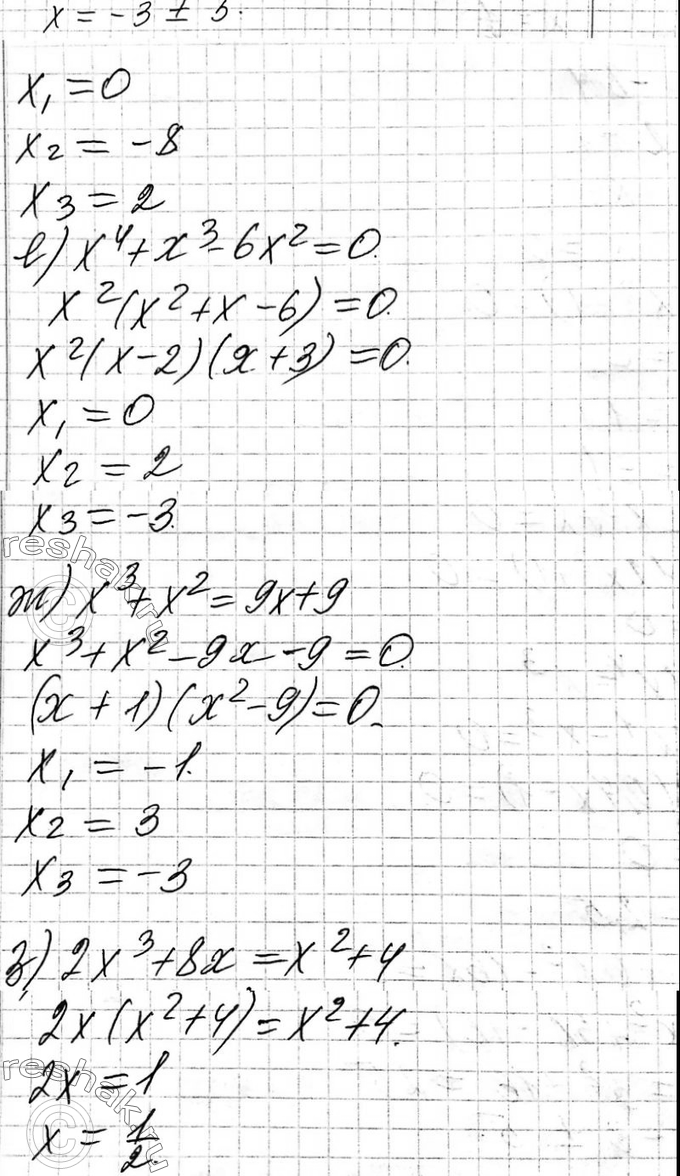 x = -3 ± 5.
x₁ = 0
x₂ = -8
x₃ = 2
е) x⁴ + x³ - 6x² = 0.
x²(x² + x - 6) = 0.
x²(x - 2)(x + 3) = 0.
x₁ = 0
x₂ = 2
x₃ = -3.
reshak.ru
ж) x³ + x² = 9x + 9
x³ + x² - 9x - 9 = 0.
(x + 1)(x² - 9) = 0.
x₁ = -1.
x₂ = 3
x₃ = -3
з) 2x³ + 8x = x² + 4
2x(x² + 4) = x² + 4.
2x = 1
reshak.ru
x = 1/2.